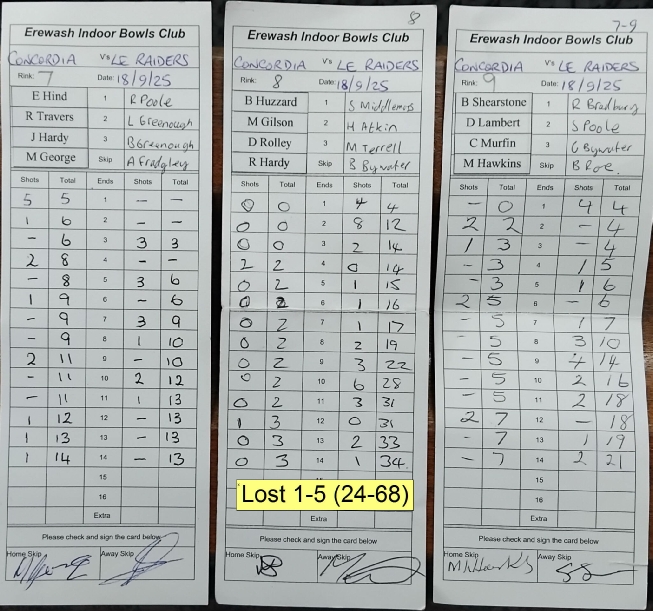 Erewash Indoor Bowls Club
CONCORDIA V's LE RAIDERS
Rink: 7 Date: 18/9/25
E Hind 1 R Poole
R Travers 2 L Greenough
J Hardy 3 B Greenough
M George Skip A Fradgley
Shots Total Ends Shots Total
5 5 1 - -
1 6 2 - -
- 6 3 3 3
2 8 4 - -
- 8 5 3 6
1 9 6 - 6
- 9 7 3 9
- 9 8 1 10
2 11 9 - 10
- 11 10 2 12
- 11 11 1 13
1 12 12 - 13
1 13 13 - 13
1 14 14 - 13
15
16
Extra
Please check and sign the card below
Home Skip Away Skip
8
Erewash Indoor Bowls Club
CONCORDIA V's LE RAIDERS
Rink: 8 Date: 18/9/25
B Huzzard 1 S Middlemass
M Gilson 2 H Atkin
D Rolley 3 M Terrell
R Hardy Skip B Bywater
Shots Total Ends Shots Total
0 0 1 4 4
0 0 2 8 12
0 0 3 2 14
2 2 4 0 14
0 2 5 1 15
0 2 6 1 16
0 2 7 1 17
0 2 8 2 19
0 2 9 3 22
0 2 10 6 28
0 2 11 3 31
1 3 12 0 31
0 3 13 2 33
0 3 14 1 34
Lost 1-5 (24-68)
16
Extra
Please check and sign the card below
Home Skip Away Skip
7-9
Erewash Indoor Bowls Club
CONCORDIA V's LE RAIDERS
Rink: 9 Date: 18/9/25
B Shearstone 1 R Bradbury
D Lambert 2 S Poole
C Murfin 3 C Bywater
M Hawkins Skip B Roe.
Shots Total Ends Shots Total
- 0 1 4 4
2 2 2 - 4
1 3 3 - 4
- 3 4 1 5
- 3 5 1 6
2 5 6 - 6
- 5 7 1 7
- 5 8 3 10
- 5 9 4 14
- 5 10 2 16
- 5 11 2 18
2 7 12 - 18
- 7 13 1 19
- 7 14 2 21
15
16
Extra
Please check and sign the card below
Home Skip Away Skip